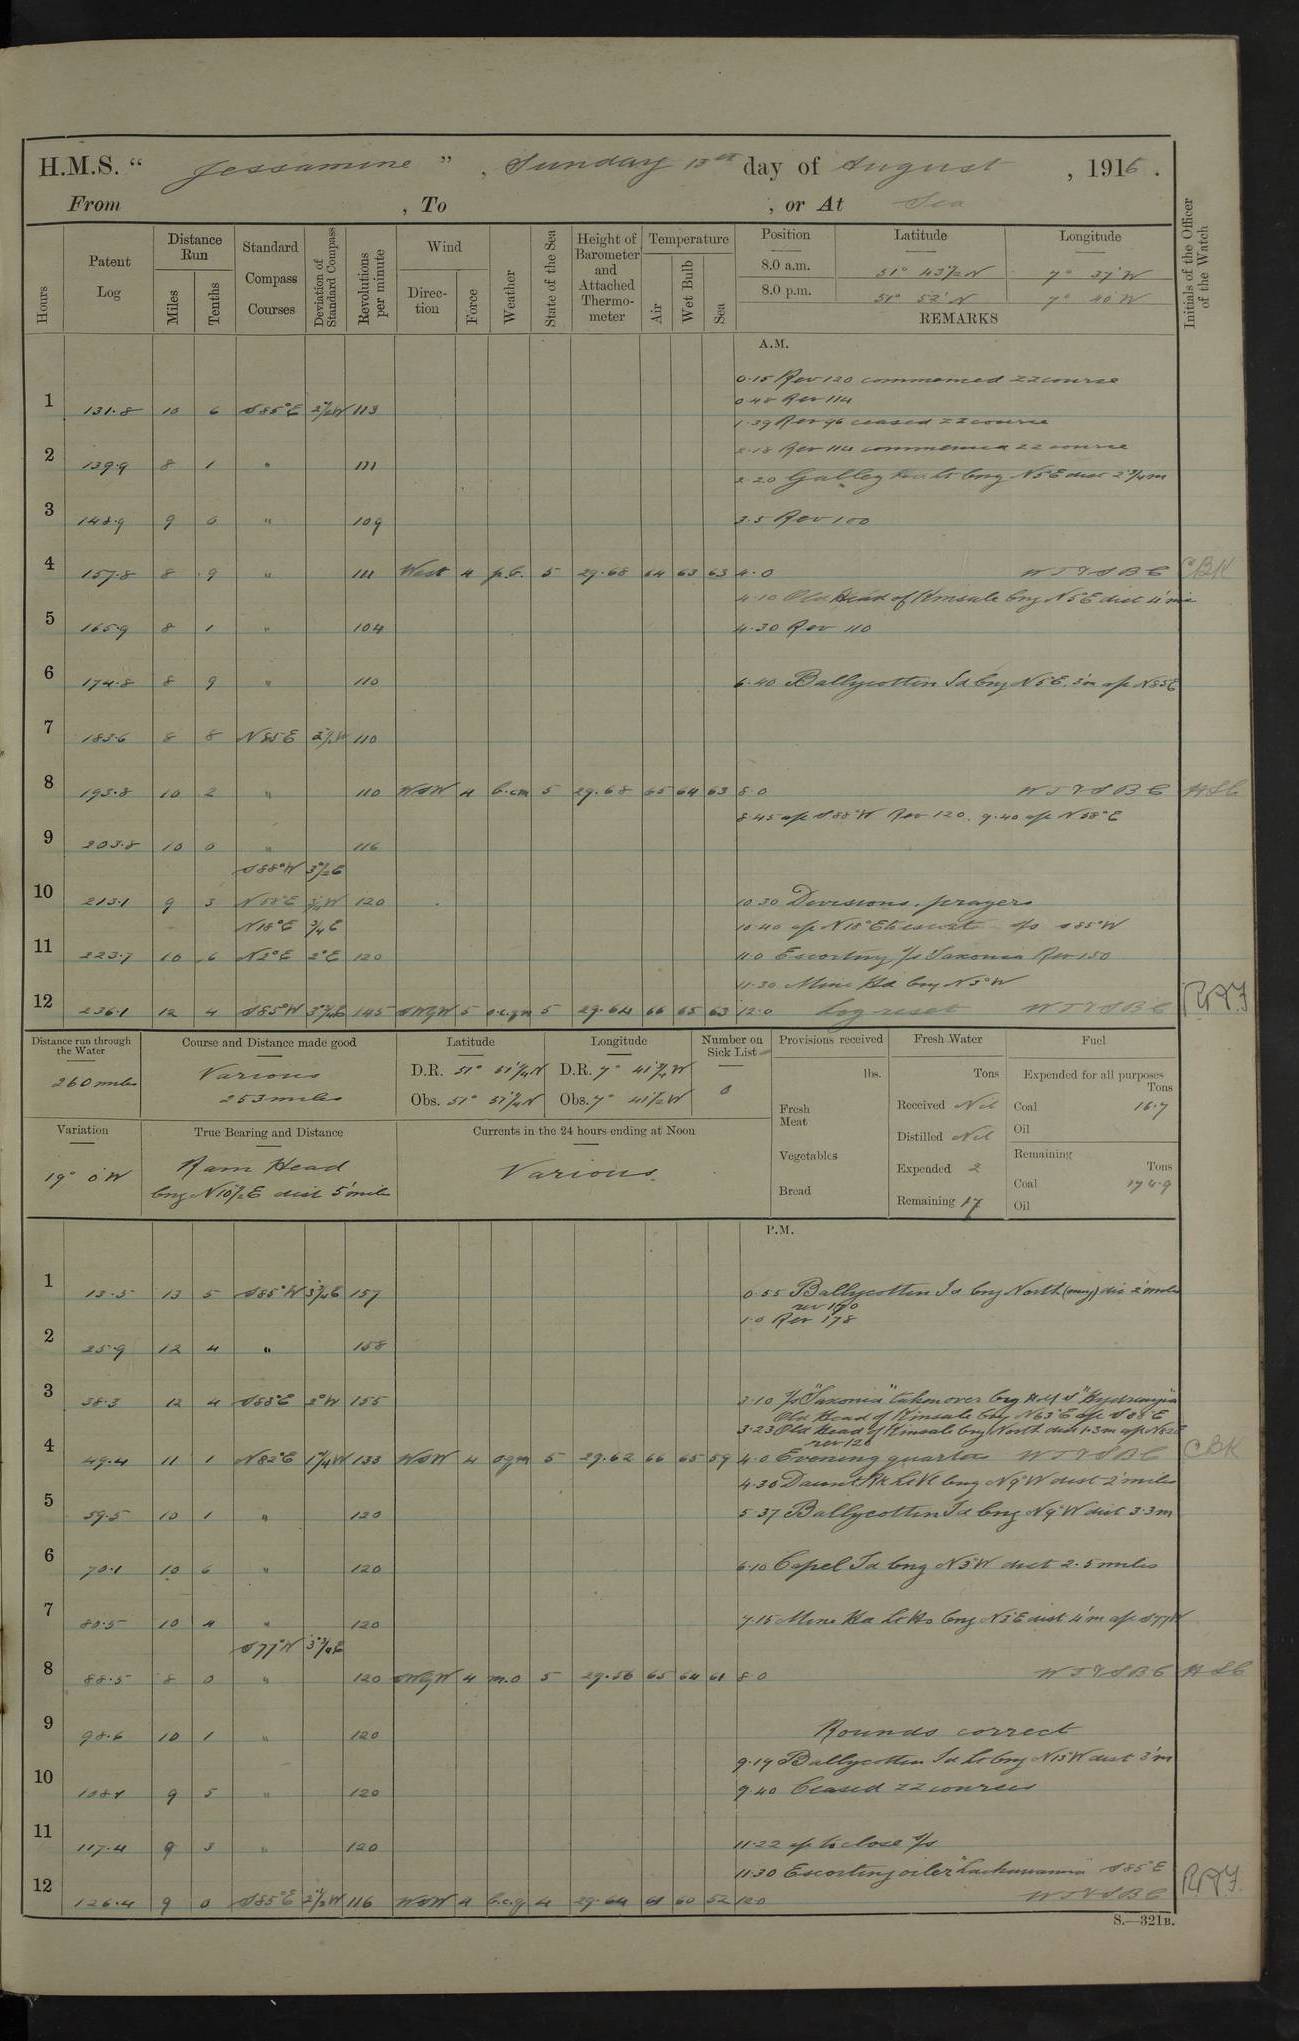 H.M.S. “ Jessamine ” , Sunday 13th day of August , 1916 .
From , To , or At Sea
Hours
Patent Log
Distance Run
Miles
Tenths
Standard Compass Courses
Deviation of Standard Compass
Revolutions per minute
Wind
Direction
Force
Weather
State of the Sea
Height of Barometer and Attached Thermometer
Temperature
Air
Wet Bulb
Sea
Position Latitude Longitude
8.0 a.m. 51° 43½ N 7° 37' W
8.0 p.m. 51° 52' N 7° 40' W
REMARKS
Initials of the Officer of the Watch
A.M.
0.15 Rev 120 commenced ZZ course
0.48 Rev 114
1 131.8 10 6 S85°E 2½W 113
1.39 Rev 96 ceased ZZ course
2.18 Rev 114 commenced ZZ course
2 139.9 8 1 " 111
2.20 Galley Head Lt brng N5°E dist 2¾ m
3 148.9 9 0 " 109 3.5 Rev 100
4 157.8 8 9 " 111 West 4 p.c. 5 29.68 64 63 63 4.0 WTVSBC CBK
4.10 Old Head of Kinsale brng N5°E dist 4' mls
5 165.9 8 1 " 104 4.30 Rev 110
6 174.8 8 9 " 110 6.40 Ballycotten Id brng N5E. 3'm a/c N85E
7 183.6 8 8 N85E 110
8 193.8 10 2 " 110 WSW 4 b.cm 5 29.68 65 64 63 8.0 WTVSBC HSC
8.45 a/c S88°W Rev 120. 9.40 a/c N58°E
9 203.8 10 0 " 116
S88°W 3½E
10 213.1 9 3 N58°E ¾W 120 10.30 Divisions. prayers
N18°E ¾E 10.40 a/c N18°E to escort S85°W
11 223.7 10 6 N2°E 2°E 120 11.0 Escorting S/S Saxonia Rev 150
11.30 Mine Hd brng N3°W
12 236.1 12 4 S85°W 3¾E 145 SWbyW 5 o.c.g.m 5 29.64 66 65 63 12.0 Log reset WTVSBC RAJ
Distance run through the Water
260 miles
Course and Distance made good
Various
253 miles
Latitude
D.R. 51° 51¼ N
Obs. 51° 51¼ N
Longitude
D.R. 7° 41¼ W
Obs. 7° 41½ W
Number on Sick List
0
Provisions received
lbs.
Fresh Meat
Vegetables
Bread
Fresh Water
Tons
Received Nil
Distilled Nil
Expended 2
Remaining 17
Fuel
Expended for all purposes
Tons
Coal 16.7
Oil
Remaining
Tons
Coal 174.9
Oil
Variation
19° 0' W
True Bearing and Distance
Ram Head
brng N10½E dist 5' miles
Currents in the 24 hours ending at Noon
Various.
P.M.
1 13.5 13 5 S85°W 3¾E 157 0.55 Ballycotten Id brng North (mag) dis 2' miles
rev 170
1.0 Rev 178
2 25.9 12 4 " 158
3 38.3 12 4 S85°E 2°W 155 3.10 S/S "Saxonia" taken over by H.M.S "Hydrangea"
Old Head of Kinsale brng N63°E a/c S88°E
3.23 Old Head of Kinsale brng North dist 1.3m a/c N82E
rev 120
4 49.4 11 1 N82°E 1¼W 133 WSW 4 ogm 5 29.62 66 65 59 4.0 Evening quarters WTVSBC CBK
4.30 Daunt Rk Lt Vl brng N9°W dist 2' miles
5 59.5 10 1 " 120 5.37 Ballycotten Id brng N9°W dist 3.3m
6 70.1 10 6 " 120 6.10 Capel Id brng N3°W dist 2.5 miles
7 80.5 10 4 " 120 7.15 Mine Hd Lt Ho brng N3E dist 4'm a/c S77W
S77°W 3¾E
8 88.5 8 0 " 120 SWbyW 4 m.o 5 29.56 65 64 61 8.0 WTVSBC HSC
9 98.6 10 1 " 120 Rounds correct
9.19 Ballycotten Id Lt brng N15°W dist 3'm
10 108.1 9 5 " 120 9.40 Ceased ZZ courses
11 117.4 9 3 " 120 11.22 a/c to close S/S
11.30 Escorting oiler "Lackawanna" S85°E
12 126.4 9 0 S85°E 2½W 116 WSW 4 b.c.g 4 29.64 61 60 52 12.0 WTVSBC RAJ.
S.—321B.